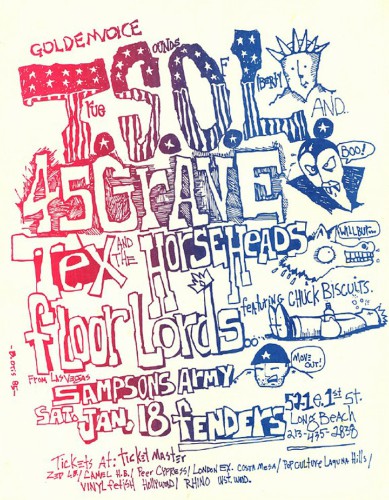 GOLDENVOICE
T.S.O.L.
True sounds of Liberty
AND.
45 GRAVE
BOO!
Tex AND THE HORSEHEADS
WALL BUT...
floor Lords..
featuring CHUCK BISCUITS.
FROM LAS VEGAS
SAMPSONS ARMY
MOVE OUT!
SAT. JAN. 18 fenders
521 e. 1st St.
Long Beach
213-435-2838
Tickets At: Ticket Master
ZED LB/ CAMEL H.B./ Peer CYPRESS/ LONDON EX. COSTA MESA/ POP CULTURE Laguna Hills/
VINYL fetish Hollywood/ RHINO West. wood